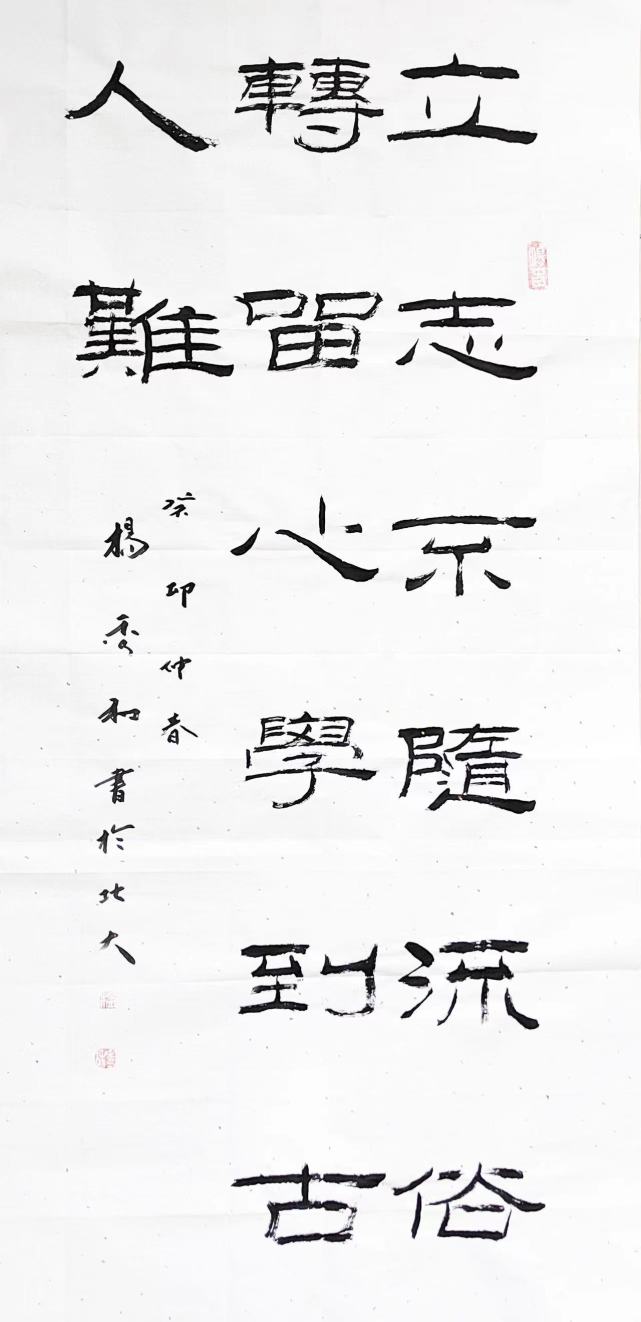 立志不隨流俗
轉留心學到古
人難
癸卯仲春
楊秀和書於北大